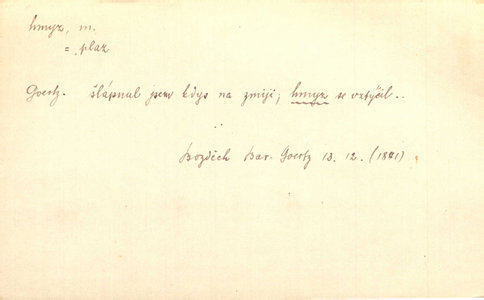 hmyz, m.
= plaz
Goertz. šlápnul jsem kdys na zmiji; hmyz se vztýčil..
Bozděch Bar. Goertz 13. 12. (1871)